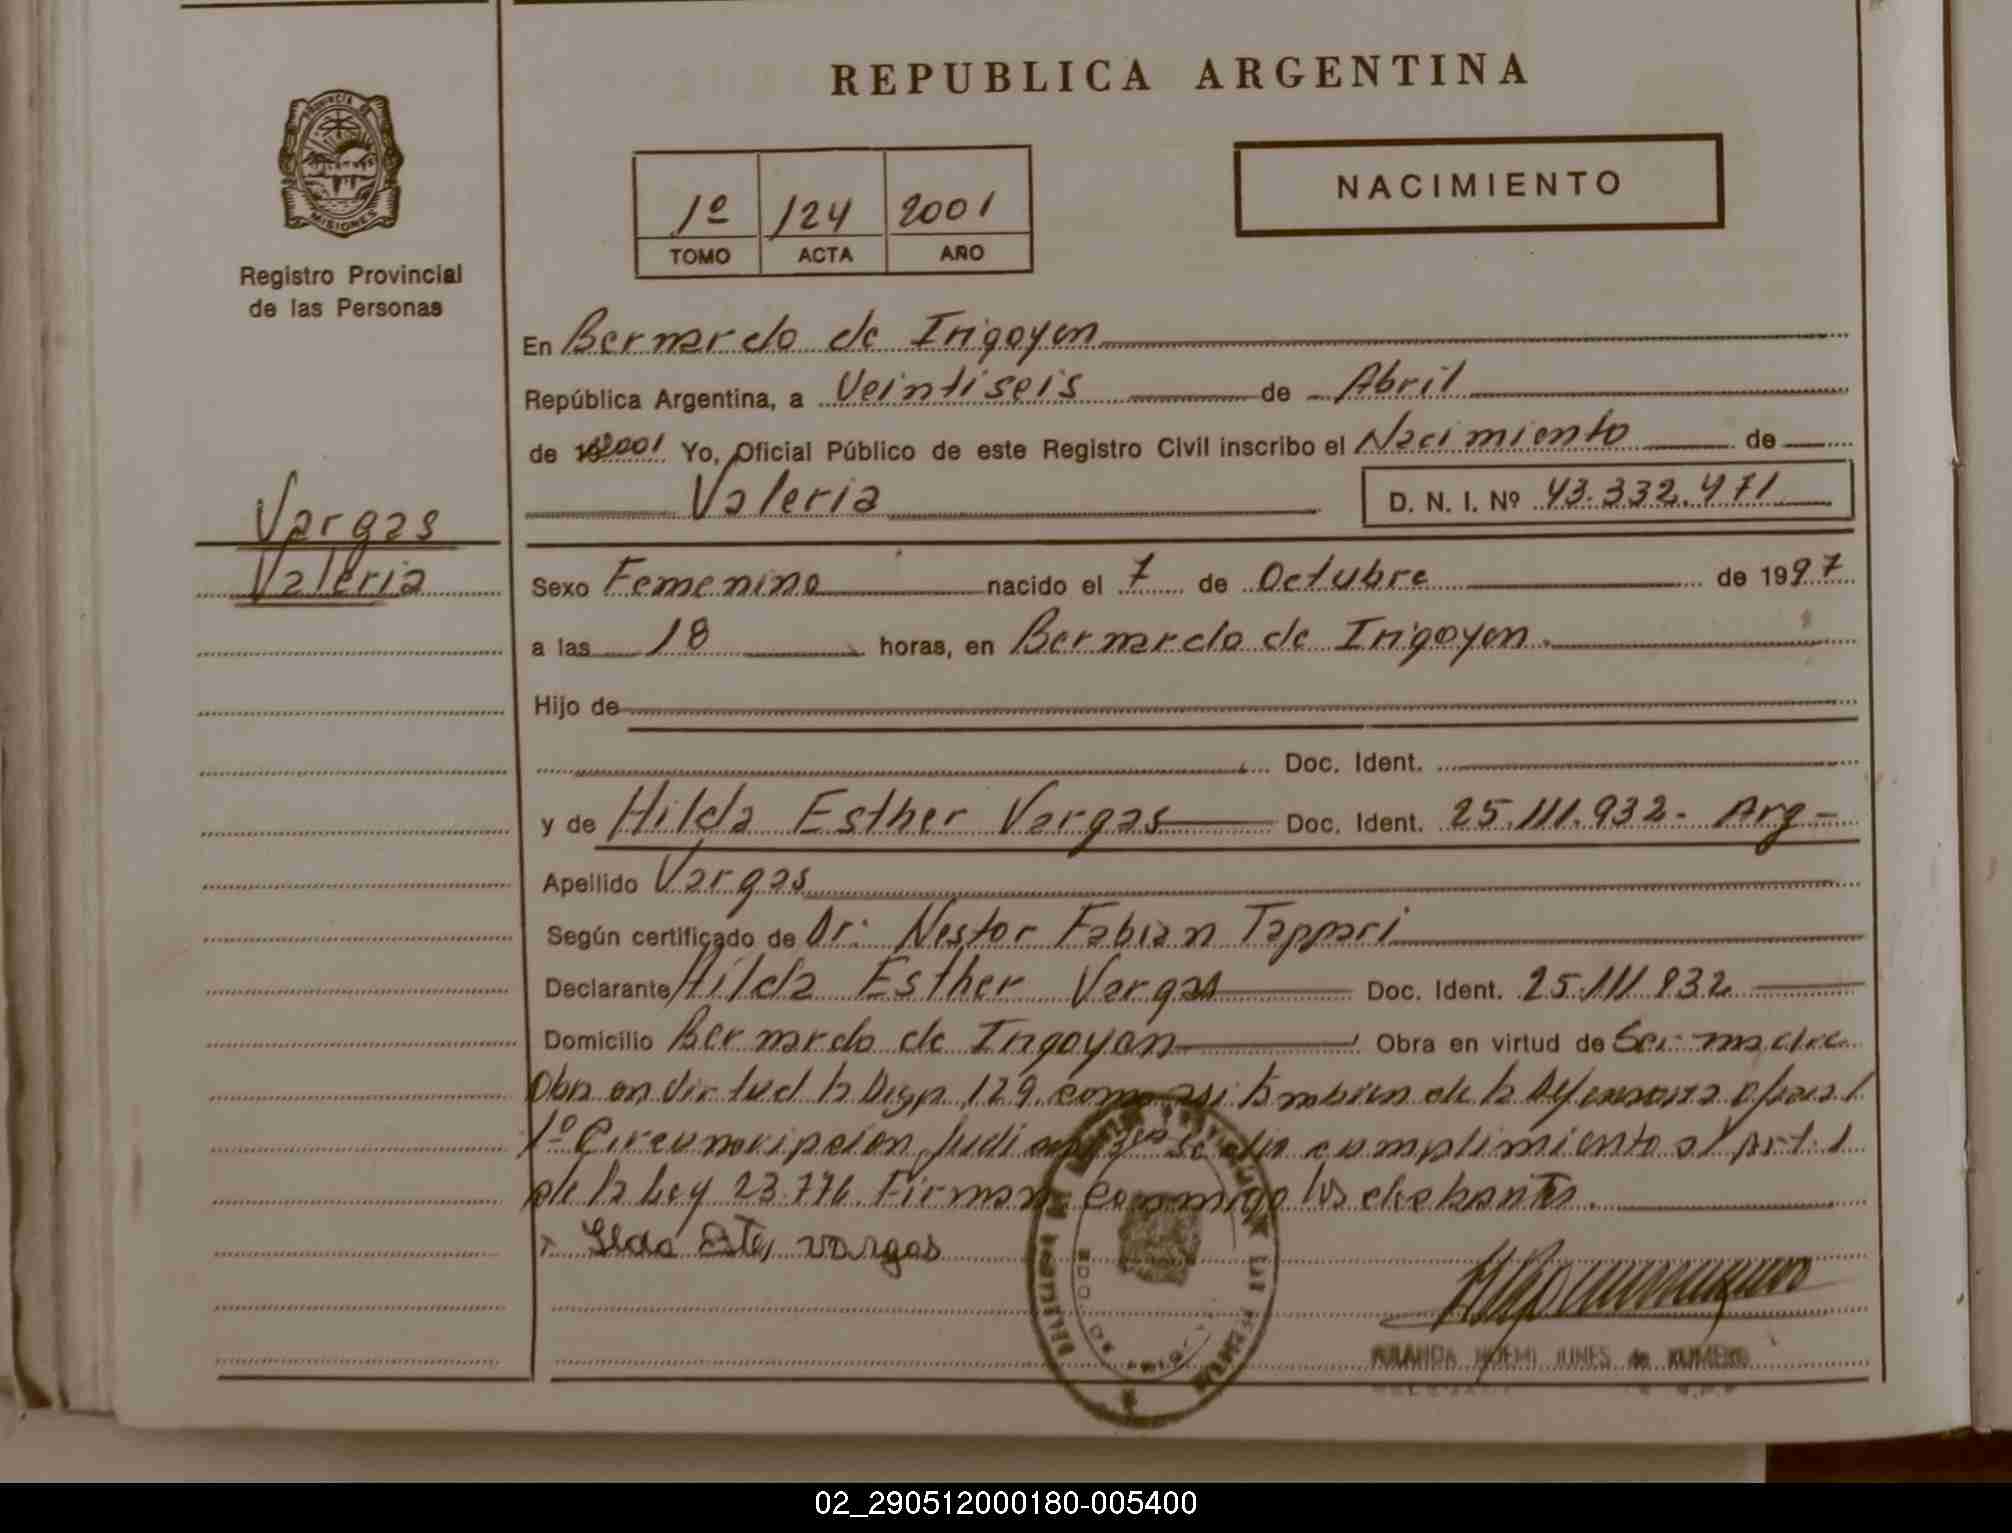 REPUBLICA ARGENTINA
PROVINCIA DE
MISIONES
Registro Provincial
de las Personas
1º 124 2001
TOMO ACTA AÑO
NACIMIENTO
En Bernardo de Irigoyen
República Argentina, a Veintiseis de Abril
de 2001 Yo, Oficial Público de este Registro Civil inscribo el Nacimiento de
Valeria D. N. I. Nº 43.332.471
Vargas
Valeria
Sexo Femenino nacido el 7 de Octubre de 1997
a las 18 horas, en Bernardo de Irigoyen.
Hijo de
Doc. Ident.
y de Hilda Esther Vargas Doc. Ident. 25.111.932- Arg-
Apellido Vargas
Según certificado de Dr: Nestor Fabian Tappari
Declarante Hilda Esther Vargas Doc. Ident. 25.111.932
Domicilio Bernardo de Irigoyen Obra en virtud de Ser madre
Obra en virtud la Disp. 129 como asi tambien de la Defensoria oficial
1º Circunscripcion Judicial se dio cumplimiento al Art. 1
de la Ley 23.776. Firman conmigo los
vargas
NOEMI de
02_290512000180-005400